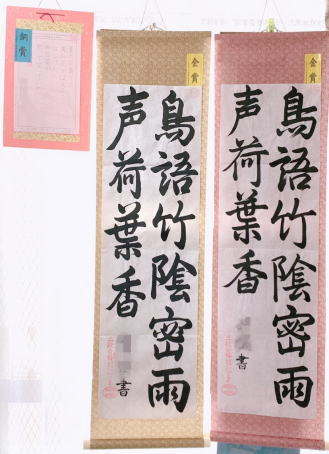 銅賞
金賞
鳥語竹陰密雨
声荷葉香
書
金賞
鳥語竹陰密雨
声荷葉香
書